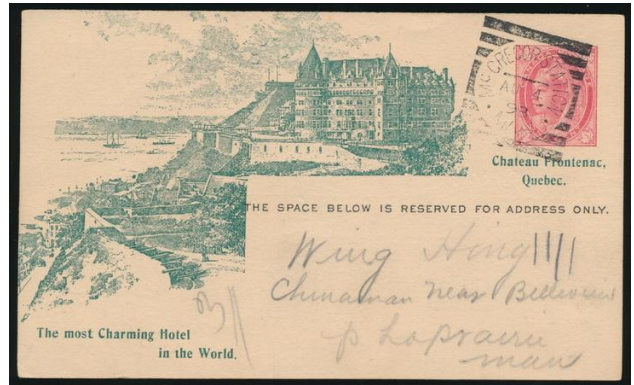 McGREGOR STATION
98
MAN
Chateau Frontenac,
Quebec.
THE SPACE BELOW IS RESERVED FOR ADDRESS ONLY.
Wing Hing
Chinaman Near Bellevue
p Laprairie
man
The most Charming Hotel
in the World.